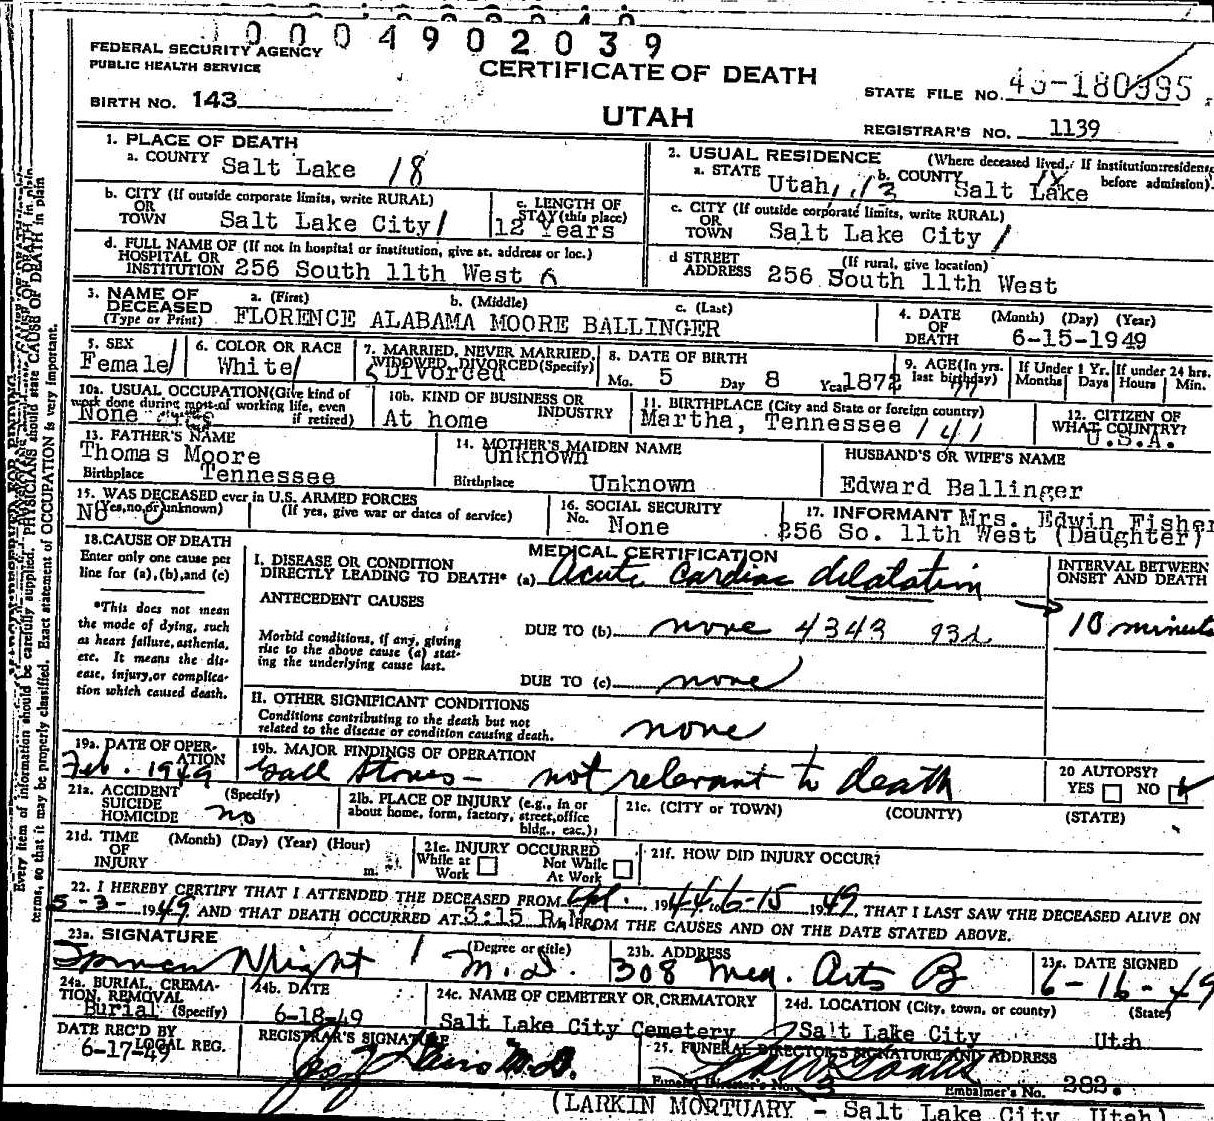 0004902039
FEDERAL SECURITY AGENCY
PUBLIC HEALTH SERVICE
CERTIFICATE OF DEATH
STATE FILE NO.
BIRTH NO. 143
UTAH
REGISTRAR'S NO. 1139
1. PLACE OF DEATH
a. COUNTY Salt Lake 18
2. USUAL RESIDENCE (Where deceased lived. If institution: residence before admission).
a. STATE Utah, 13 b. COUNTY Salt Lake 18
b. CITY (If outside corporate limits, write RURAL) OR TOWN Salt Lake City 1
c. LENGTH OF STAY (this place) 12 Years
c. CITY (If outside corporate limits, write RURAL) OR TOWN Salt Lake City 1
d. FULL NAME OF (If not in hospital or institution, give st. address or loc.) HOSPITAL OR INSTITUTION 256 South 11th West 6
d STREET ADDRESS (If rural, give location) 256 South 11th West
3. NAME OF DECEASED (Type or Print) a. (First) b. (Middle) c. (Last)
FLORENCE ALABAMA MOORE BALLINGER
4. DATE OF DEATH (Month) (Day) (Year) 6-15-1949
5. SEX Female
6. COLOR OR RACE White
7. MARRIED, NEVER MARRIED, WIDOWED, DIVORCED (Specify) 5 Divorced
8. DATE OF BIRTH Mo. 5 Day 8 Year 1872
9. AGE (In yrs. last birthday) 77
If Under 1 Yr. Months Days
If under 24 hrs. Hours Min.
10a. USUAL OCCUPATION (Give kind of work done during most of working life, even if retired) None
10b. KIND OF BUSINESS OR INDUSTRY At home
11. BIRTHPLACE (City and State or foreign country) Martha, Tennessee 141
12. CITIZEN OF WHAT COUNTRY? U.S.A.
13. FATHER'S NAME Thomas Moore
Birthplace Tennessee
14. MOTHER'S MAIDEN NAME Unknown
Birthplace Unknown
HUSBAND'S OR WIFE'S NAME
Edward Ballinger
15. WAS DECEASED ever in U.S. ARMED FORCES
(Yes, no, or unknown) No (If yes, give war or dates of service)
16. SOCIAL SECURITY No. None
17. INFORMANT Mrs. Edwin Fisher
256 So. 11th West (Daughter)
18. CAUSE OF DEATH
Enter only one cause per line for (a), (b), and (c)
*This does not mean the mode of dying, such as heart failure, asthenia, etc. It means the disease, injury, or complication which caused death.
MEDICAL CERTIFICATION
I. DISEASE OR CONDITION DIRECTLY LEADING TO DEATH* (a) Acute cardiac dilatation
INTERVAL BETWEEN ONSET AND DEATH
10 minute
ANTECEDENT CAUSES
Morbid conditions, if any, giving rise to the above cause (a) stating the underlying cause last.
DUE TO (b) none 4343 93d
DUE TO (c) none
II. OTHER SIGNIFICANT CONDITIONS
Conditions contributing to the death but not related to the disease or condition causing death.
none
19a. DATE OF OPERATION Feb. 1949
19b. MAJOR FINDINGS OF OPERATION
Gall Stones - not relevant to death
20 AUTOPSY?
YES NO
21a. ACCIDENT SUICIDE HOMICIDE (Specify) no
21b. PLACE OF INJURY (e.g., in or about home, form, factory, street, office bldg., eac.)
21c. (CITY or TOWN) (COUNTY) (STATE)
21d. TIME OF INJURY (Month) (Day) (Year) (Hour) m.
21e. INJURY OCCURRED While at Work Not While At Work
21f. HOW DID INJURY OCCUR?
22. I HEREBY CERTIFY THAT I ATTENDED THE DECEASED FROM 1944 to 6-15 1949, THAT I LAST SAW THE DECEASED ALIVE ON
5-3- 1949 AND THAT DEATH OCCURRED AT 3:15 P.M. FROM THE CAUSES AND ON THE DATE STATED ABOVE.
23a. SIGNATURE (Degree or title)
Wright M.D.
23b. ADDRESS
308 Med. Arts B
23c. DATE SIGNED
6-16-49
24a. BURIAL, CREMATION, REMOVAL (Specify) Burial
24b. DATE 6-18-49
24c. NAME OF CEMETERY OR CREMATORY Salt Lake City Cemetery
24d. LOCATION (City, town, or county) (State) Salt Lake City Utah
DATE REC'D BY LOCAL REG. 6-17-49
REGISTRAR'S SIGNATURE M.D.
25. FUNERAL DIRECTOR'S SIGNATURE AND ADDRESS
Funeral Director's No. 3 Embalmer's No. 282.
(LARKIN MORTUARY - Salt Lake City, Utah)
Every item of information should be carefully supplied. PHYSICIANS should state CAUSE OF DEATH in plain
terms, so that it may be properly classified. Exact statement of OCCUPATION is very important.